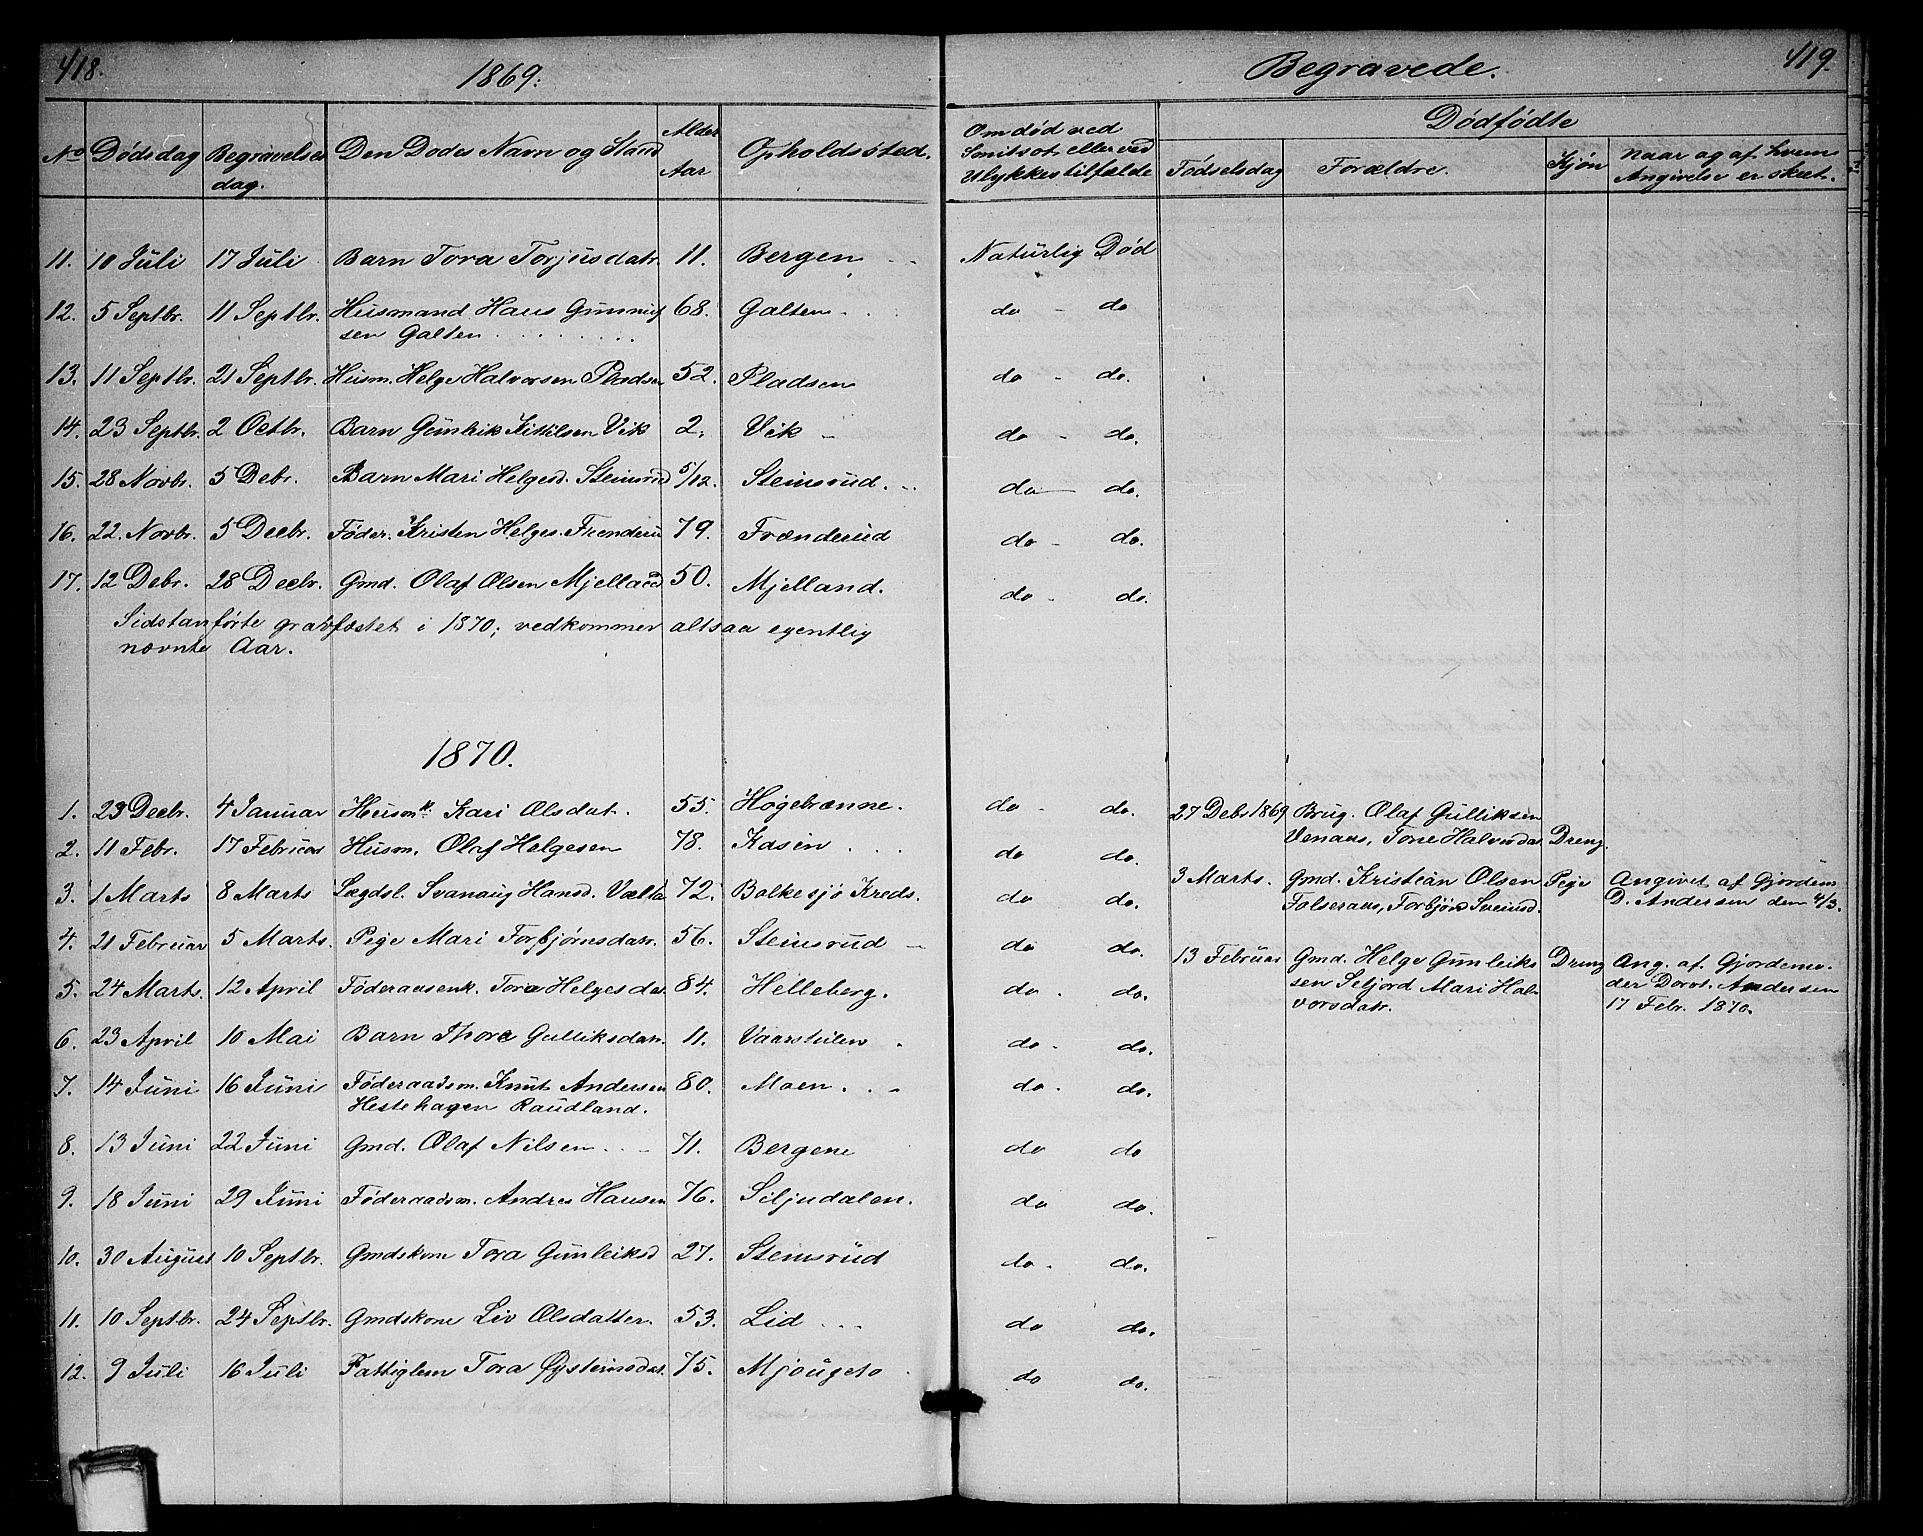 418.
1869.
Begravede.
419.
No
Dødsdag
Begravelses
dag.
Den Dødes Navn og Stand
Alder
Aar
Opholdssted.
Om død ved
Smitsot eller ved
Ulykkestilfælde
Dødfødte
Fødselsdag
Forældre.
Kjøn
Naar og af hvem
Angivelse er skeet.
11. 10 Juli 17 Juli Barn Tora Torjusdatr. 11. Bergen Naturlig Død
12. 5 Septbr. 11 Septbr. Husmand Hans Gunnuf 68. Galten. do - do
sen Galten
13. 11 Septbr. 21 Septbr. Husm. Helge Halvorsen Pladsen 52. Pladsen do - do.
14. 23 Septbr. 2 Octbr. Barn Gunleik Kittilsen Vik 2. Vik - do - do.
15. 28 Novbr. 5 Debr. Barn Mari Helgesd. Steinsrud 5/12. Steinsrud. do - do.
16. 22. Novbr. 5 Decbr. Føder. Kristen Helges. Frenderu 79. Frænderud do - do.
17. 12 Debr. 28 Decbr. Gmd. Olaf Olsen Mjelland 50. Mjelland. do - do.
Sidstanførte gravfæstet i 1870; vedkommer altsaa egentlig
nævnte Aar.
1870.
1. 23 Decbr. 4 Januar Husmk. Kari Olsdat. 55. Høgebrænne. do - do. 27 Debr 1869 Brug. Olaf Gulliksen
Venaas, Tone Halvordat. Dreng.
2. 11 Febr. 17 Februar Husm. Olaf Helgesen 78. Kasin do do.
3. 1 Marts 8 Marts Lægdsl. Svanaug Hansd. 72. Bolkesjø Kreds. do do. 3 Marts. Gmd. Kristian Olsen Pige Angivet af Gjordem.
Torbjør Sveinsd. D. Andersen den 4/3.
4. 21 Februar 5 Marts. Pige Mari Torbjørnsdatr. 56. Steinsrud - do do.
13 Februar Gmd. Helge Gunleiks Dreng Ang. af Gjordemo-
sen Seljord Mari Hal- der Dorot. Andersen
vorsdatr. 17 Febr. 1870.
5. 24 Marts. 12 April Føderaasenk. Tora Helgesdat. 84. Helleberg. do - do.
6. 23 April 10 Mai Barn Thore Gulliksdatr. 11. Vaarstulen do - do.
7. 14 Juni 16 Juni Føderaadsm. Knut Andersen 80. Moen. do - do.
Hestehagen Raudland.
8. 13 Juni 22 Juni Gmd. Olaf Nilsen 71. Bergene do do
9. 18 Juni 29 Juni Føderaadsm. Andres Hansen 76. Siljudalen. do do.
10. 30 August 10 Septbr. Gmdskone Tora Gunleiksd 27. Steinsrud do - do.
11. 10 Septbr. 24 Septbr. Gmdskone Liv Olsdatter. 53. Lid do do.
12. 9 Juli 16 Juli Fattiglem Tora Øysteinsdat. 75. Mjougeto do do.